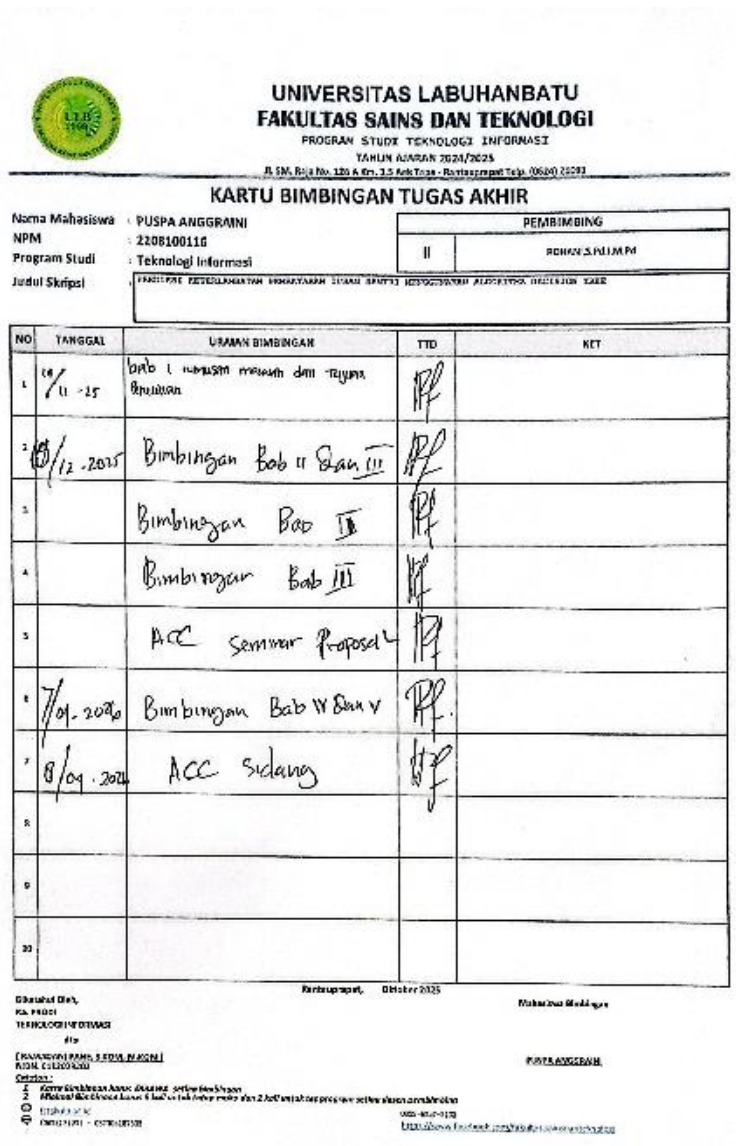 ULB
UNIVERSITAS LABUHANBATU
FAKULTAS SAINS DAN TEKNOLOGI
PROGRAM STUDI TEKNOLOGI INFORMASI
TAHUN AJARAN 2024/2025
Jl. SM. Raja No. 126 A Km. 3.5 Aek Tapa - Rantauprapat Telp. (0624)
KARTU BIMBINGAN TUGAS AKHIR
Nama Mahasiswa : PUSPA ANGGRAINI
NPM : 2208100116
Program Studi : Teknologi Informasi
Judul Skripsi :
PEMBIMBING
II ROHANI,S.Pd.I,M.Pd
NO TANGGAL URAIAN BIMBINGAN TTD KET
1 /11 -25 bab 1 rumusan masalah dan Tujuan
2 /12 -2025 Bimbingan Bab II dan III
3 Bimbingan Bab II
4 Bimbingan Bab III
5 ACC Seminar Proposal
6 7/01-2026 Bimbingan Bab IV dan V
7 8/01-2026 ACC Sidang
8
9
10
Rantauprapat, Oktober 2025
Diketahui Oleh,
KA. PRODI
TEKNOLOGI INFORMASI
dto
Mahasiswa Bimbingan
PUSPA ANGGRAINI
Catatan :
1 Kartu Bimbingan harus dibawa setiap bimbingan